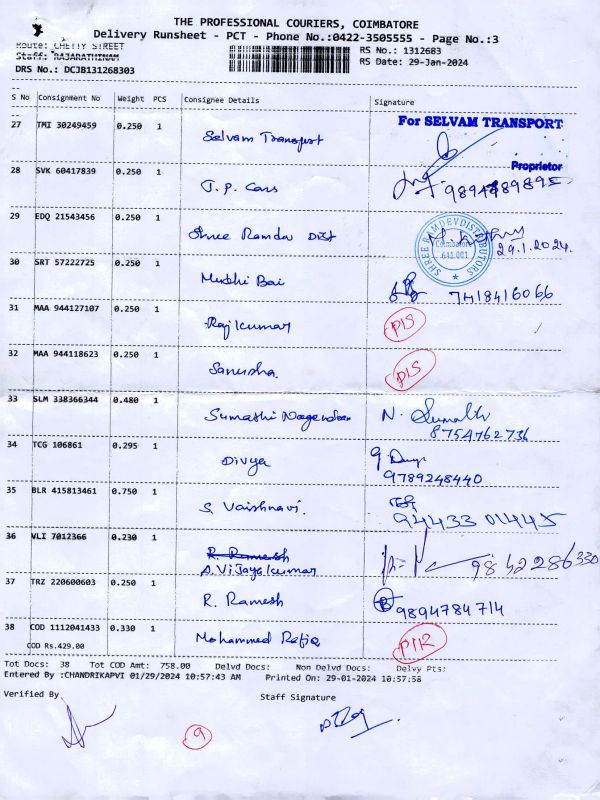 THE PROFESSIONAL COURIERS, COIMBATORE
Delivery Runsheet - PCT - Phone No.:0422-3505555 - Page No.:3
Route: CHETTY STREET
Staff: RAJARATHINAM
DRS No.: DCJB131268303
RS No.: 1312683
RS Date: 29-Jan-2024
S No Consignment No Weight PCS Consignee Details Signature
27 TMI 30249459 0.250 1 Selvam Transport For SELVAM TRANSPORT
Proprietor
28 SVK 60417839 0.250 1 J.P. Cars
29 EDQ 21543456 0.250 1 Shree Ramdev Dist 29.1.2024.
SHREE RAMDEV DISTRIBUTORS Coimbatore 641 001
30 SRT 57222725 0.250 1 Mudhi Bai 7418416066
31 MAA 944127107 0.250 1 Rajkumar P1S
32 MAA 944118623 0.250 1 Sanusha. P1S
33 SLM 338366344 0.480 1 Sumathi Nagendran N. Sumathi
8754762736
34 TCG 106861 0.295 1 Divya
9789248440
35 BLR 415813461 0.750 1 S. Vaishnavi. 94433 01445
36 VLI 7012366 0.230 1 R. Ramesh
A. Vijayakumar 9842286330
37 TRZ 220600603 0.250 1 R. Ramesh 9894784714
38 COD 1112041433 0.330 1 Mohammed Rafiq P1R
COD Rs.429.00
Tot Docs: 38 Tot COD Amt: 758.00 Delvd Docs: Non Delvd Docs: Delvy Pts:
Entered By :CHANDRIKAPVI 01/29/2024 10:57:43 AM Printed On: 29-01-2024 10:57:58
Verified By Staff Signature
9